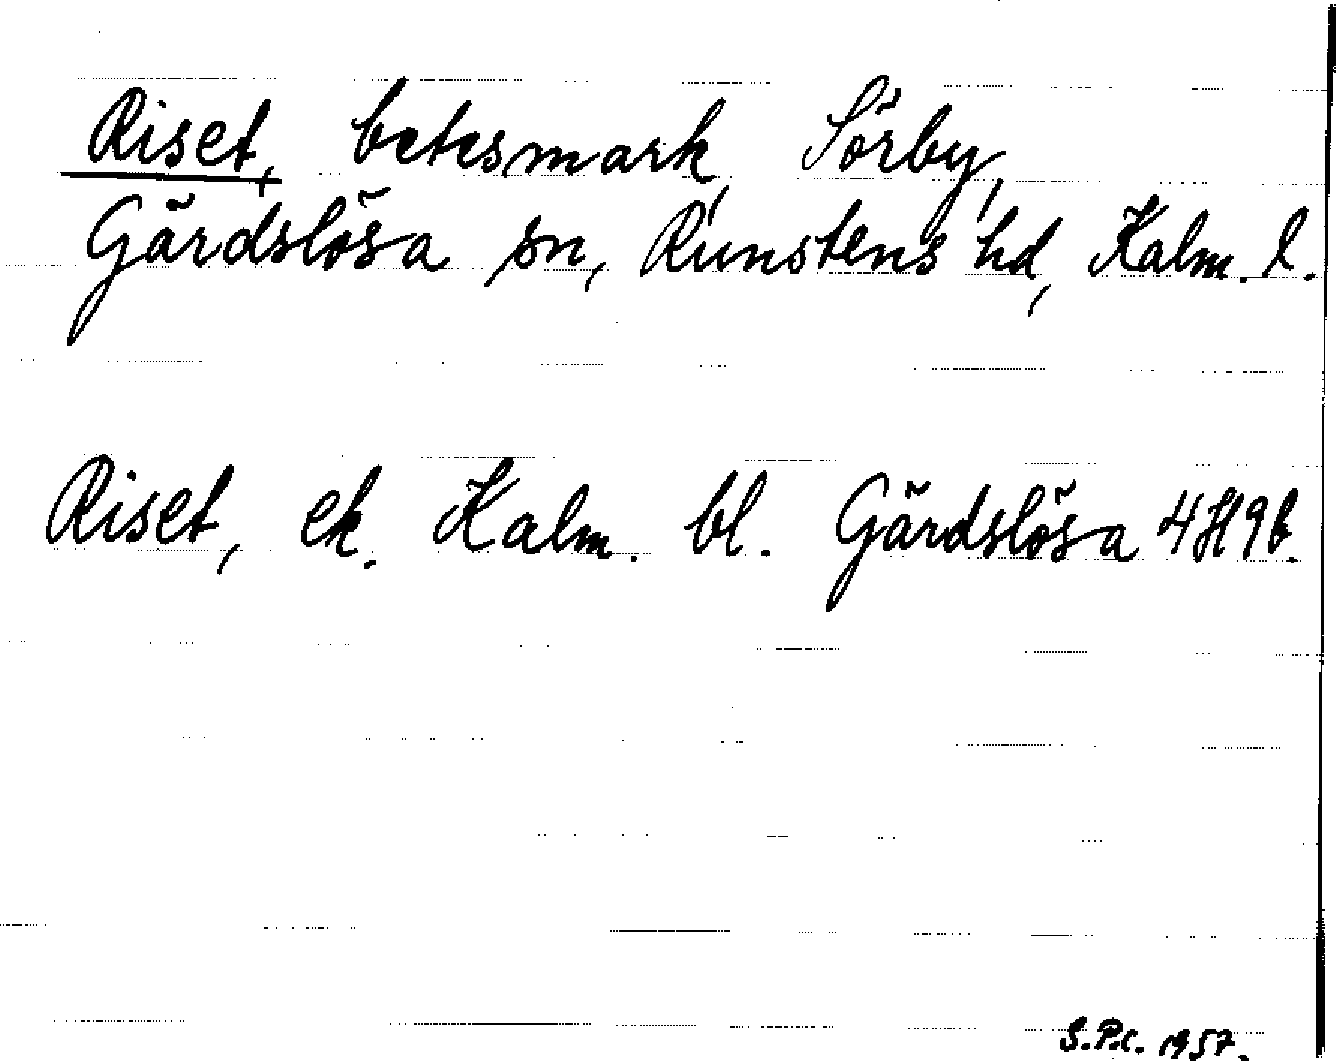 Riset, betesmark, Sörby,
Gärdslösa sn, Runstens hd, Kalm. l.
Riset, ek. Kalm. bl. Gärdslösa 4H9b.
S.P.C. 1957.